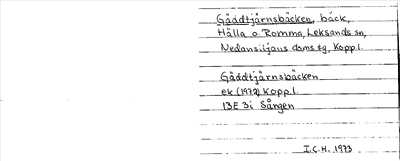 Gäddtjärnsbäcken, bäck,
Hälla o. Romma, Leksands sn,
Nedansiljans doms.tg, Kopp.l.
Gäddtjärnsbäcken
ek (1972) Kopp.l.
13E 3i Sången
I.C.H. 1973